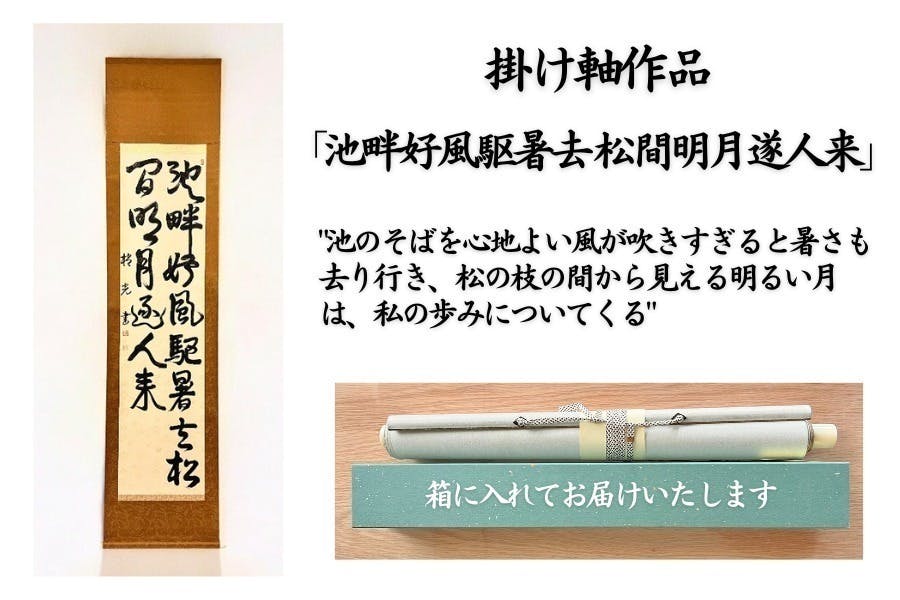 池畔好風駆暑去松
間明月逐人来
掛け軸作品
「池畔好風駆暑去松間明月遂人来」
"池のそばを心地よい風が吹きすぎると暑さも
去り行き、松の枝の間から見える明るい月
は、私の歩みについてくる"
箱に入れてお届けいたします